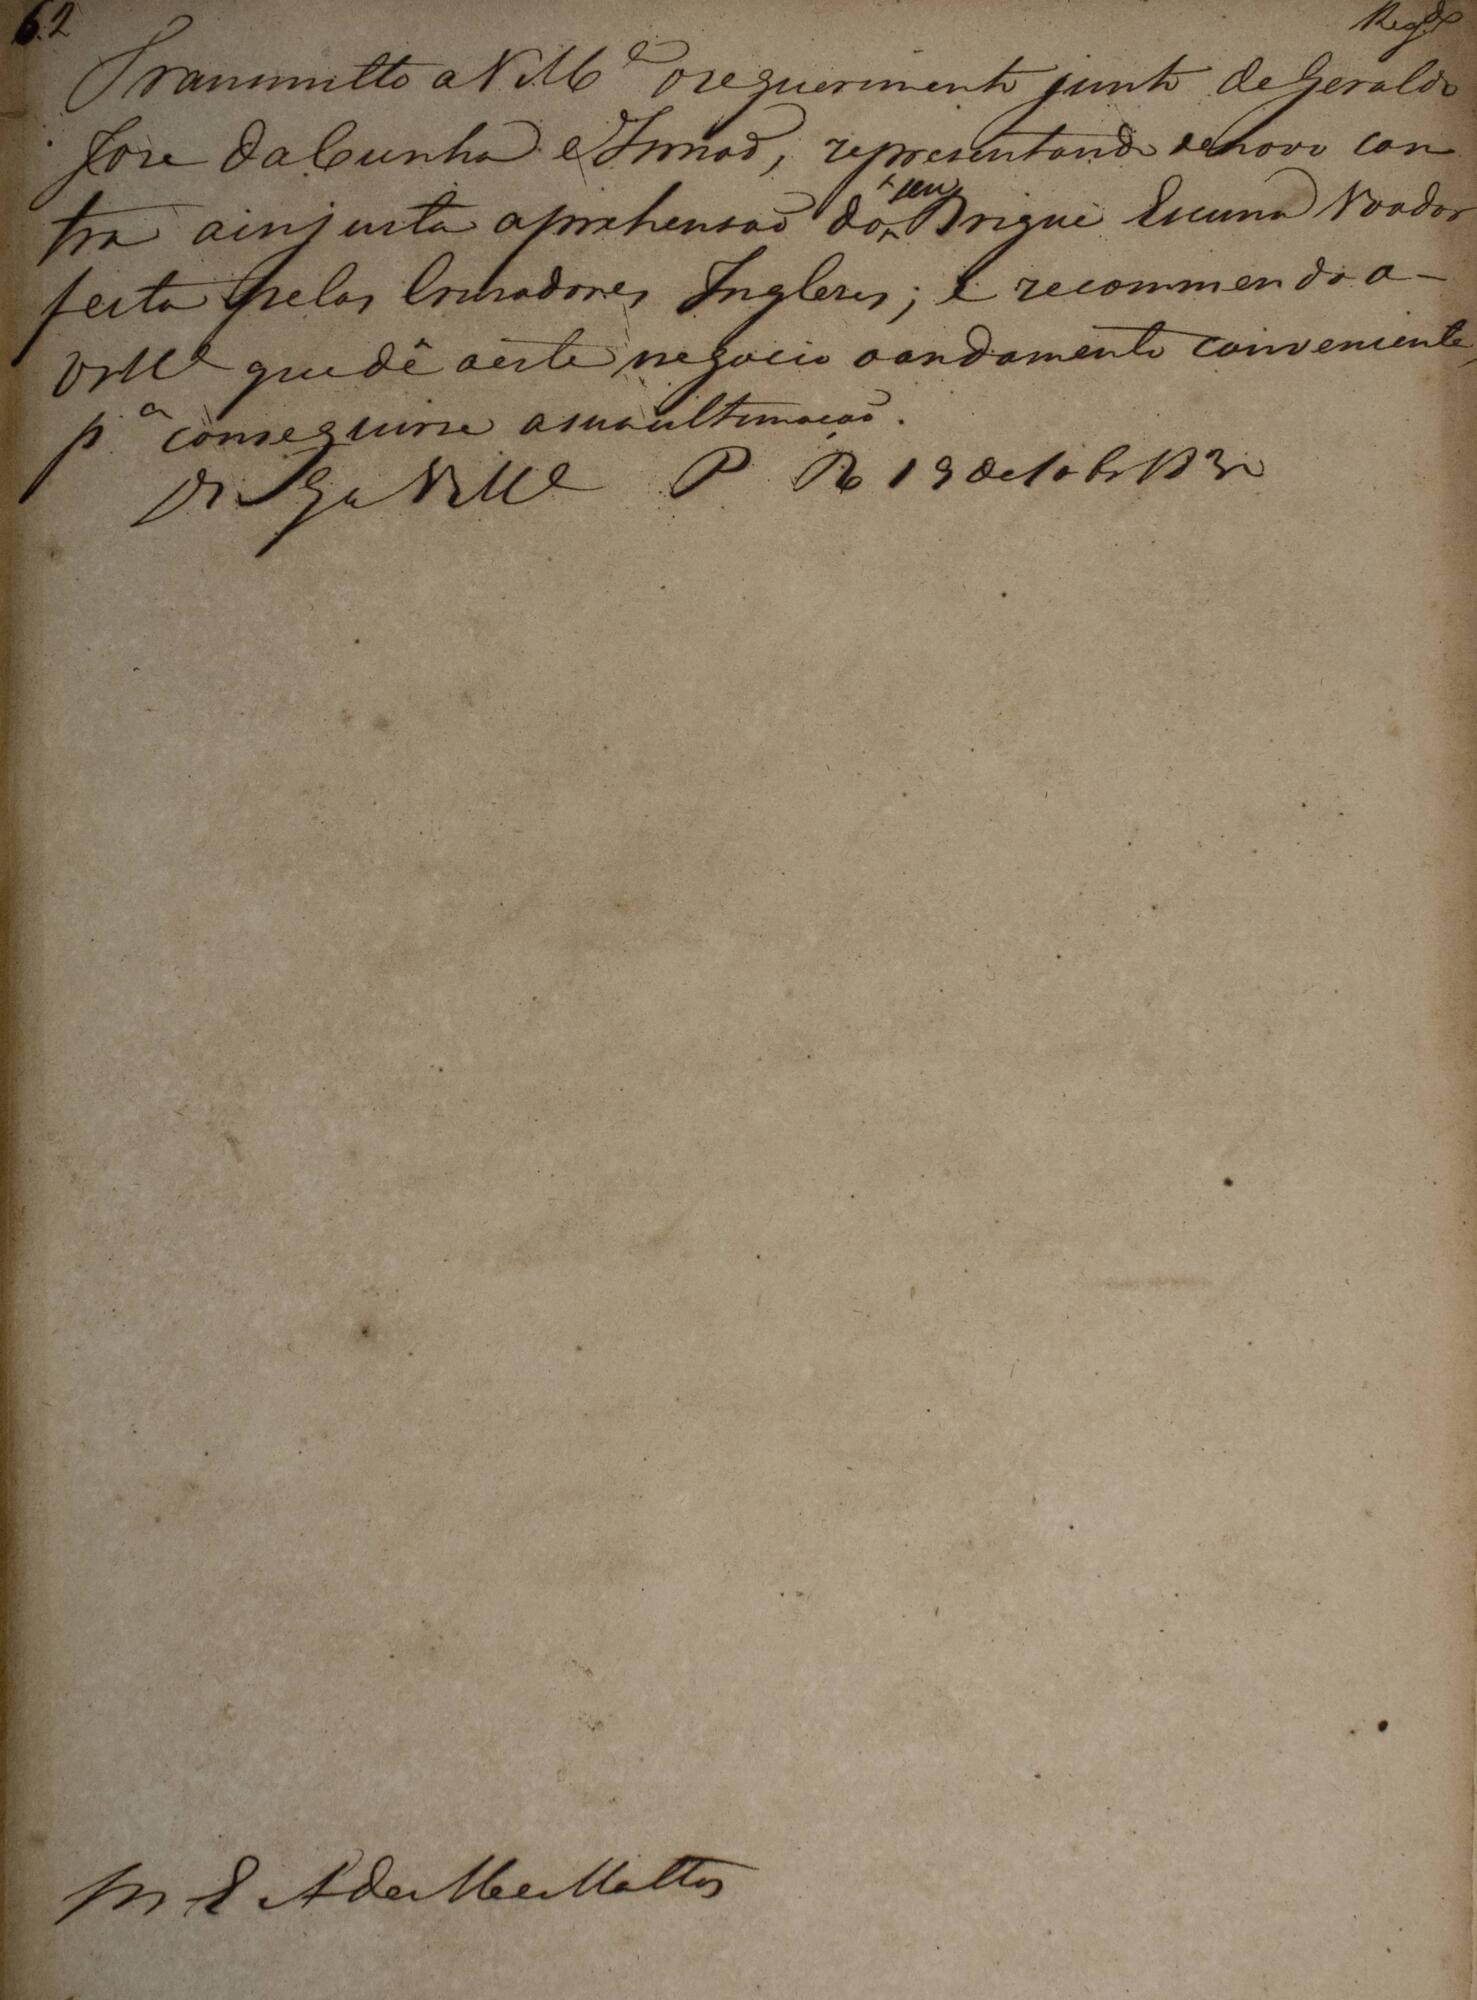 62
Reg.do
Transmitto a V Mce o requerimento junto de Geraldo
Jose da Cunha e Irmaõ, representando de novo con
tra a injusta aprehensaõ do seu Brigue Escuna Voador
feita pelos Crusadores Ingleses; e recommendo a-
VMce que dê a este negocio o andamento conveniente,
pa conseguirse a sua ultimaçaõ.
Ds Ge a VMce P R 19 de 1830
M E A de Me e Mattos